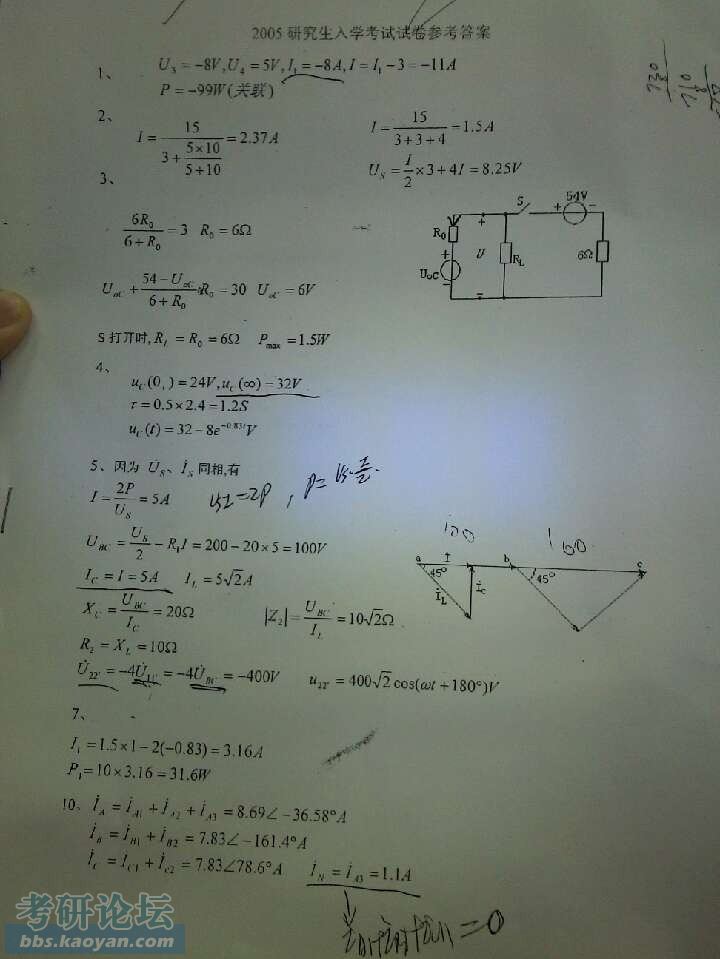 2005 研究生入学考试试卷参考答案
1、 U₃ = -8V, U₄ = 5V, I₁ = -8A, I = I₁ - 3 = -11A
P = -99W (关联)
2、
I = 15/(3 + (5×10)/(5+10)) = 2.37A
I = 15/(3+3+4) = 1.5A
U_S = I/2 × 3 + 4I = 8.25V
3、
6R₀/(6 + R₀) = 3 R₀ = 6Ω
U_oC + (54 - U_oC)/(6 + R₀) R₀ = 30 U_oC = 6V
S 打开时, R_L = R₀ = 6Ω P_max = 1.5W
S
54V
+ -
R₀
+
U_OC
-
+
U
-
R_L
6Ω
4、
u_C(0₊) = 24V, u_C(∞) = 32V
τ = 0.5 × 2.4 = 1.2S
u_C(t) = 32 - 8e^(-0.83t) V
5、因为 U̇_S、İ_S 同相,有
I = 2P/U_S = 5A
U_BC = U_S/2 - R₁I = 200 - 20 × 5 = 100V
I_C = I = 5A I_L = 5√2A
X_C = U_BC/I_C = 20Ω |Z₂| = U_BC/I_L = 10√2Ω
R₂ = X_L = 10Ω
U̇_22' = -4U̇_11' = -4U̇_BC = -400V u_22' = 400√2 cos(ωt + 180°)V
100
100
a I b c
45° 45°
İ_L İ_C
7、
I₁ = 1.5 × 1 - 2(-0.83) = 3.16A
P₁ = 10 × 3.16 = 31.6W
10、 İ_A = İ_A1 + İ_A2 + İ_A3 = 8.69∠-36.58°A
İ_B = İ_B1 + İ_B2 = 7.83∠-161.4°A
İ_C = I_C1 + İ_C2 = 7.83∠78.6°A İ_N = İ_A3 = 1.1A
= 0
考研论坛
bbs.kaoyan.com